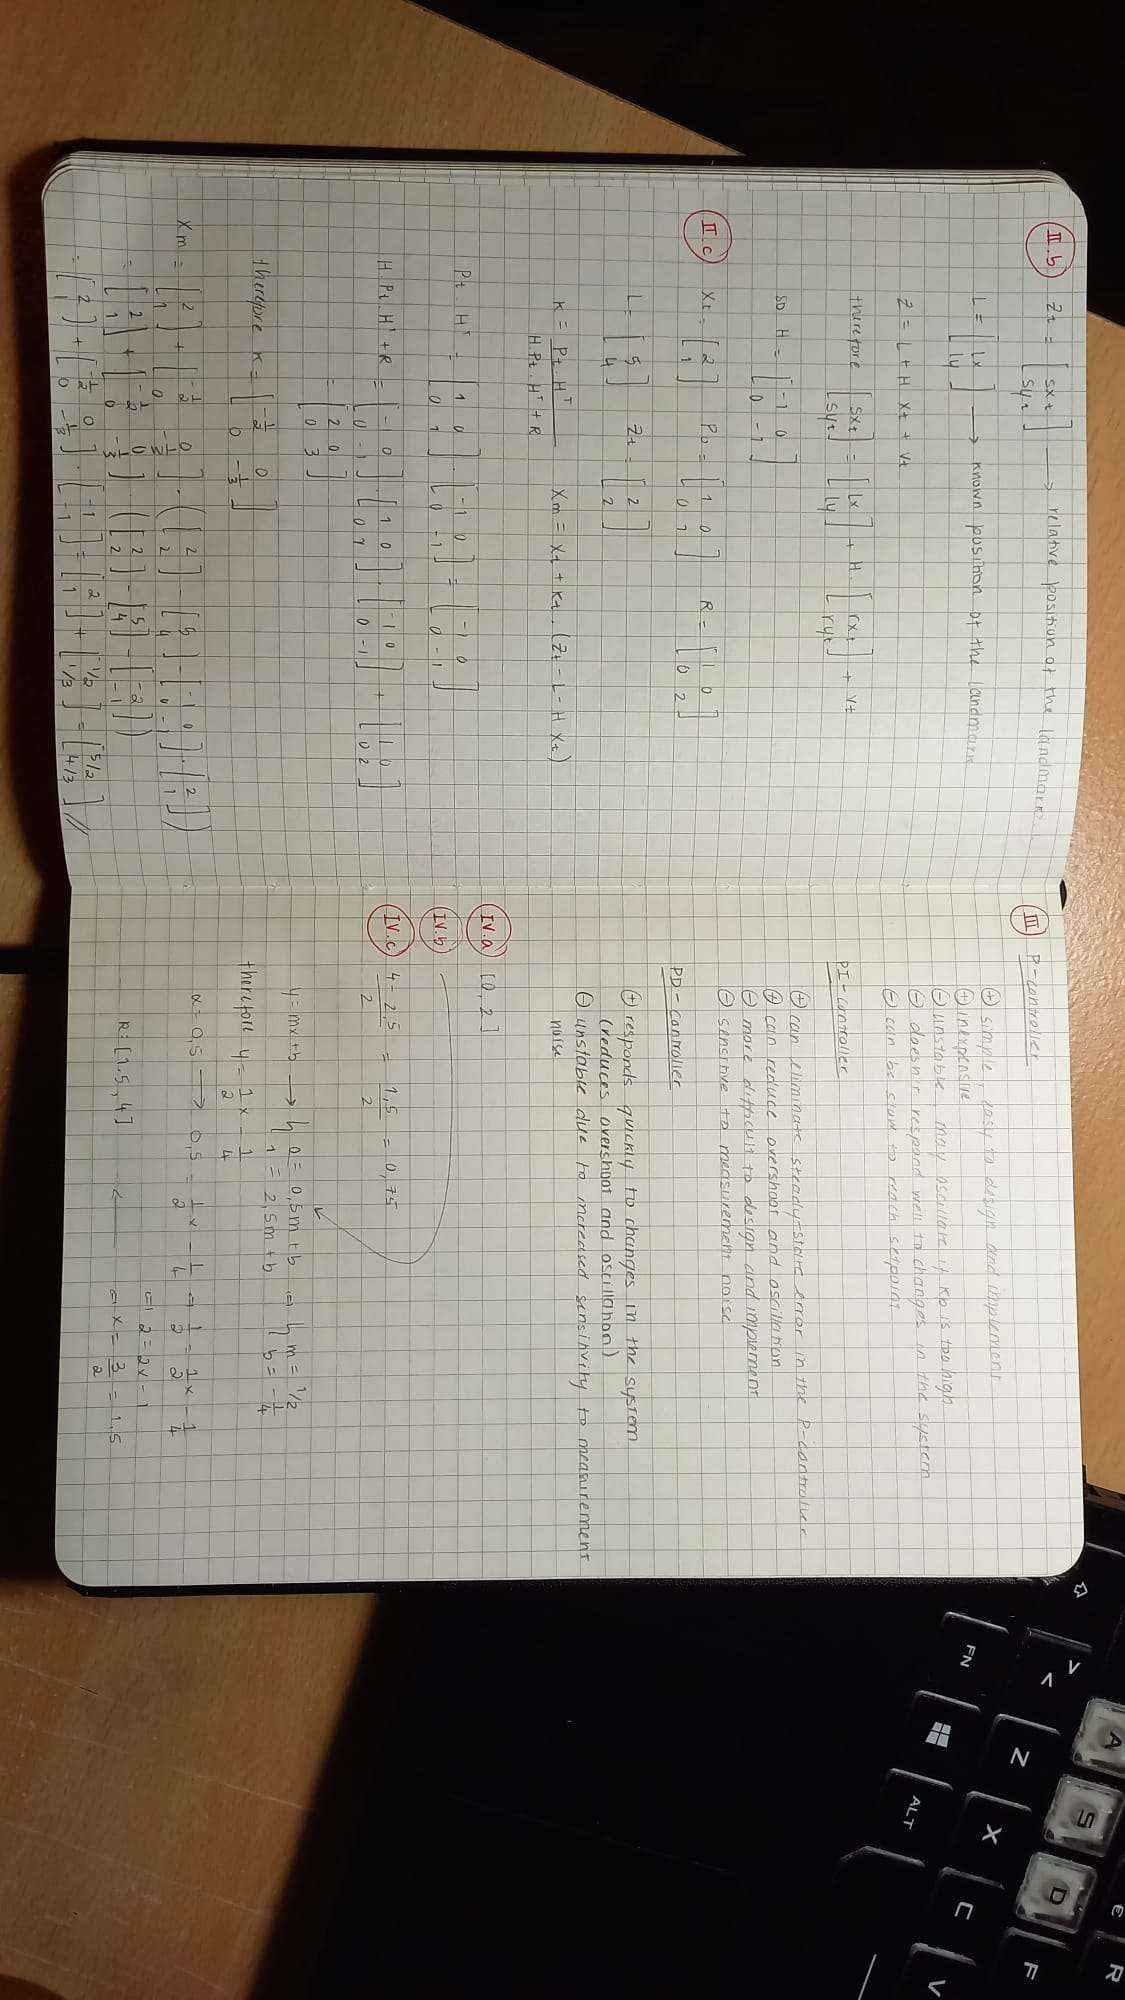 II.b) Zt = [sxt syt] → relative position of the landmark
L = [lx ly] → known position of the landmark
Z = L + H Xt + Vt
therefore [sxt syt] = [lx ly] + H. [rxt ryt] + Vt
so H = [-1 0 0 -1]
II.c) Xt = [2 1] P0 = [1 0 0 1] R = [1 0 0 2]
L = [5 4] Zt = [2 2]
K = Pt.H^T / H.Pt.H^T + R Xm = Xt + Kt.(Zt - L - H Xt)
Pt.H^T = [1 0 0 1].[-1 0 0 -1] = [-1 0 0 -1]
H.Pt.H^T + R = [-1 0 0 -1].[1 0 0 1].[-1 0 0 -1] + [1 0 0 2]
= [2 0 0 3]
therefore K = [-1/2 0 0 -1/3]
Xm = [2 1] + [-1/2 0 0 -1/3].([2 2] - [5 4] - [-1 0 0 -1].[2 1])
= [2 1] + [-1/2 0 0 -1/3].([2 2] - [5 4] - [-2 -1])
= [2 1] + [-1/2 0 0 -1/3].[-1 -1] = [2 1] + [1/2 1/3] = [5/2 4/3] //
III P-controller
+ simple, easy to design and implement
+ inexpensive
- unstable, may oscillate if Kp is too high
- doesn't respond well to changes in the system
- can be slow to reach setpoint
PI-controller
+ can eliminate steady-state error in the P-controller
+ can reduce overshoot and oscillation
- more difficult to design and implement
- sensitive to measurement noise
PD-controller
+ responds quickly to changes in the system
(reduces overshoot and oscillation)
- unstable due to increased sensitivity to measurement
noise
IV.a) [0, 2]
IV.b)
IV.c) 4-2,5 / 2 = 1,5 / 2 = 0,75
y = mx+b → { 0 = 0,5m + b 1 = 2,5m + b ⇒ { m = 1/2 b = -1/4
therefore y = 1/2 x - 1/4
α = 0,5 → 0,5 = 1/2 x - 1/4 ⇒ 1/2 = 1/2 x - 1/4
⇒ 2 = 2x - 1
R: [1.5, 4] ← ⇒ x = 3/2 = 1,5
FN
ALT
A
S
D
F
Z
X
C
V
E
R